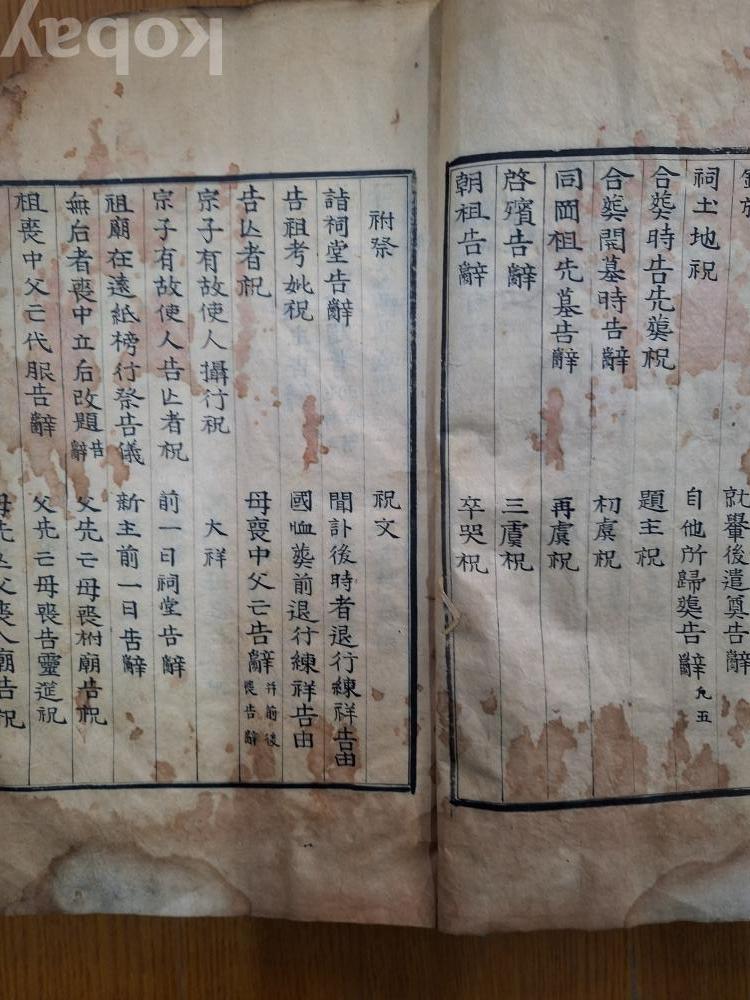 祠土地祝
合葬時告先葬祝
合葬開墓時告辭
同岡祖先墓告辭
啓殯告辭
朝祖告辭
就轝後遣奠告辭
自他所歸葬告辭 九五
題主祝
初虞祝
再虞祝
三虞祝
卒哭祝
祔祭
詣祠堂告辭
告祖考妣祝
告亡者祝
宗子有故使人攝行祝
宗子有故使人告亡者祝
祖廟在遠紙榜行祭告儀
無后者喪中立后改題告辭
祖喪中父亡代服告辭
祝文
聞訃後時者退行練祥告由
國恤葬前退行練祥告由
母喪中父亡告辭 幷前後喪告辭
大祥
前一日祠堂告辭
新主前一日告辭
父先亡母喪祔廟告祝
父先亡母喪告靈筵祝
母先亡父喪入廟告祝
kobay